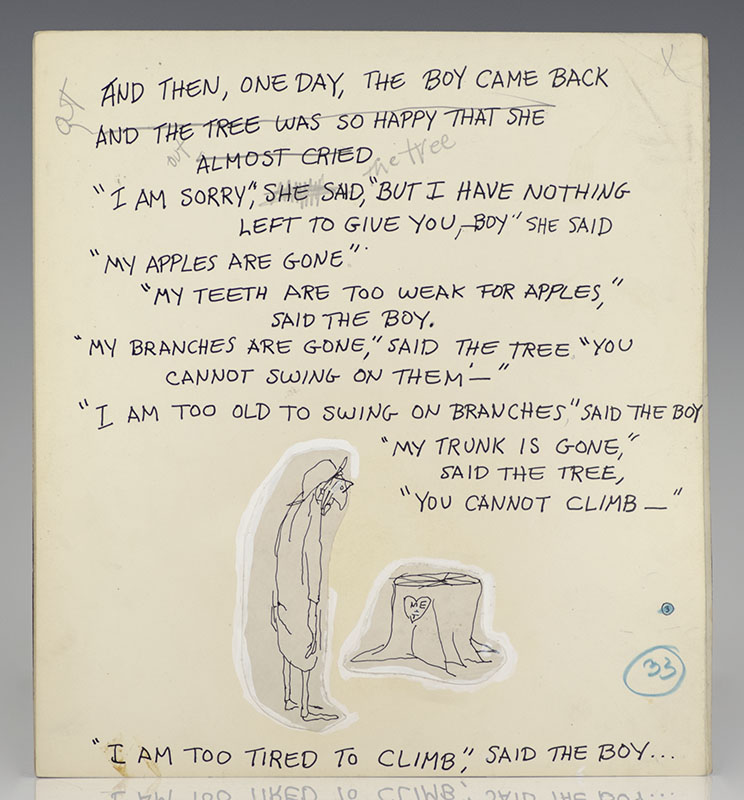 AND THEN, ONE DAY, THE BOY CAME BACK
out
AND THE TREE WAS SO HAPPY THAT SHE
out
ALMOST CRIED
the tree
"I AM SORRY", SHE SAID, "BUT I HAVE NOTHING
LEFT TO GIVE YOU, BOY" SHE SAID
"MY APPLES ARE GONE"
"MY TEETH ARE TOO WEAK FOR APPLES,"
SAID THE BOY.
"MY BRANCHES ARE GONE," SAID THE TREE "YOU
CANNOT SWING ON THEM —"
"I AM TOO OLD TO SWING ON BRANCHES" SAID THE BOY
"MY TRUNK IS GONE,"
SAID THE TREE,
"YOU CANNOT CLIMB —"
ME
T
33
"I AM TOO TIRED TO CLIMB", SAID THE BOY...